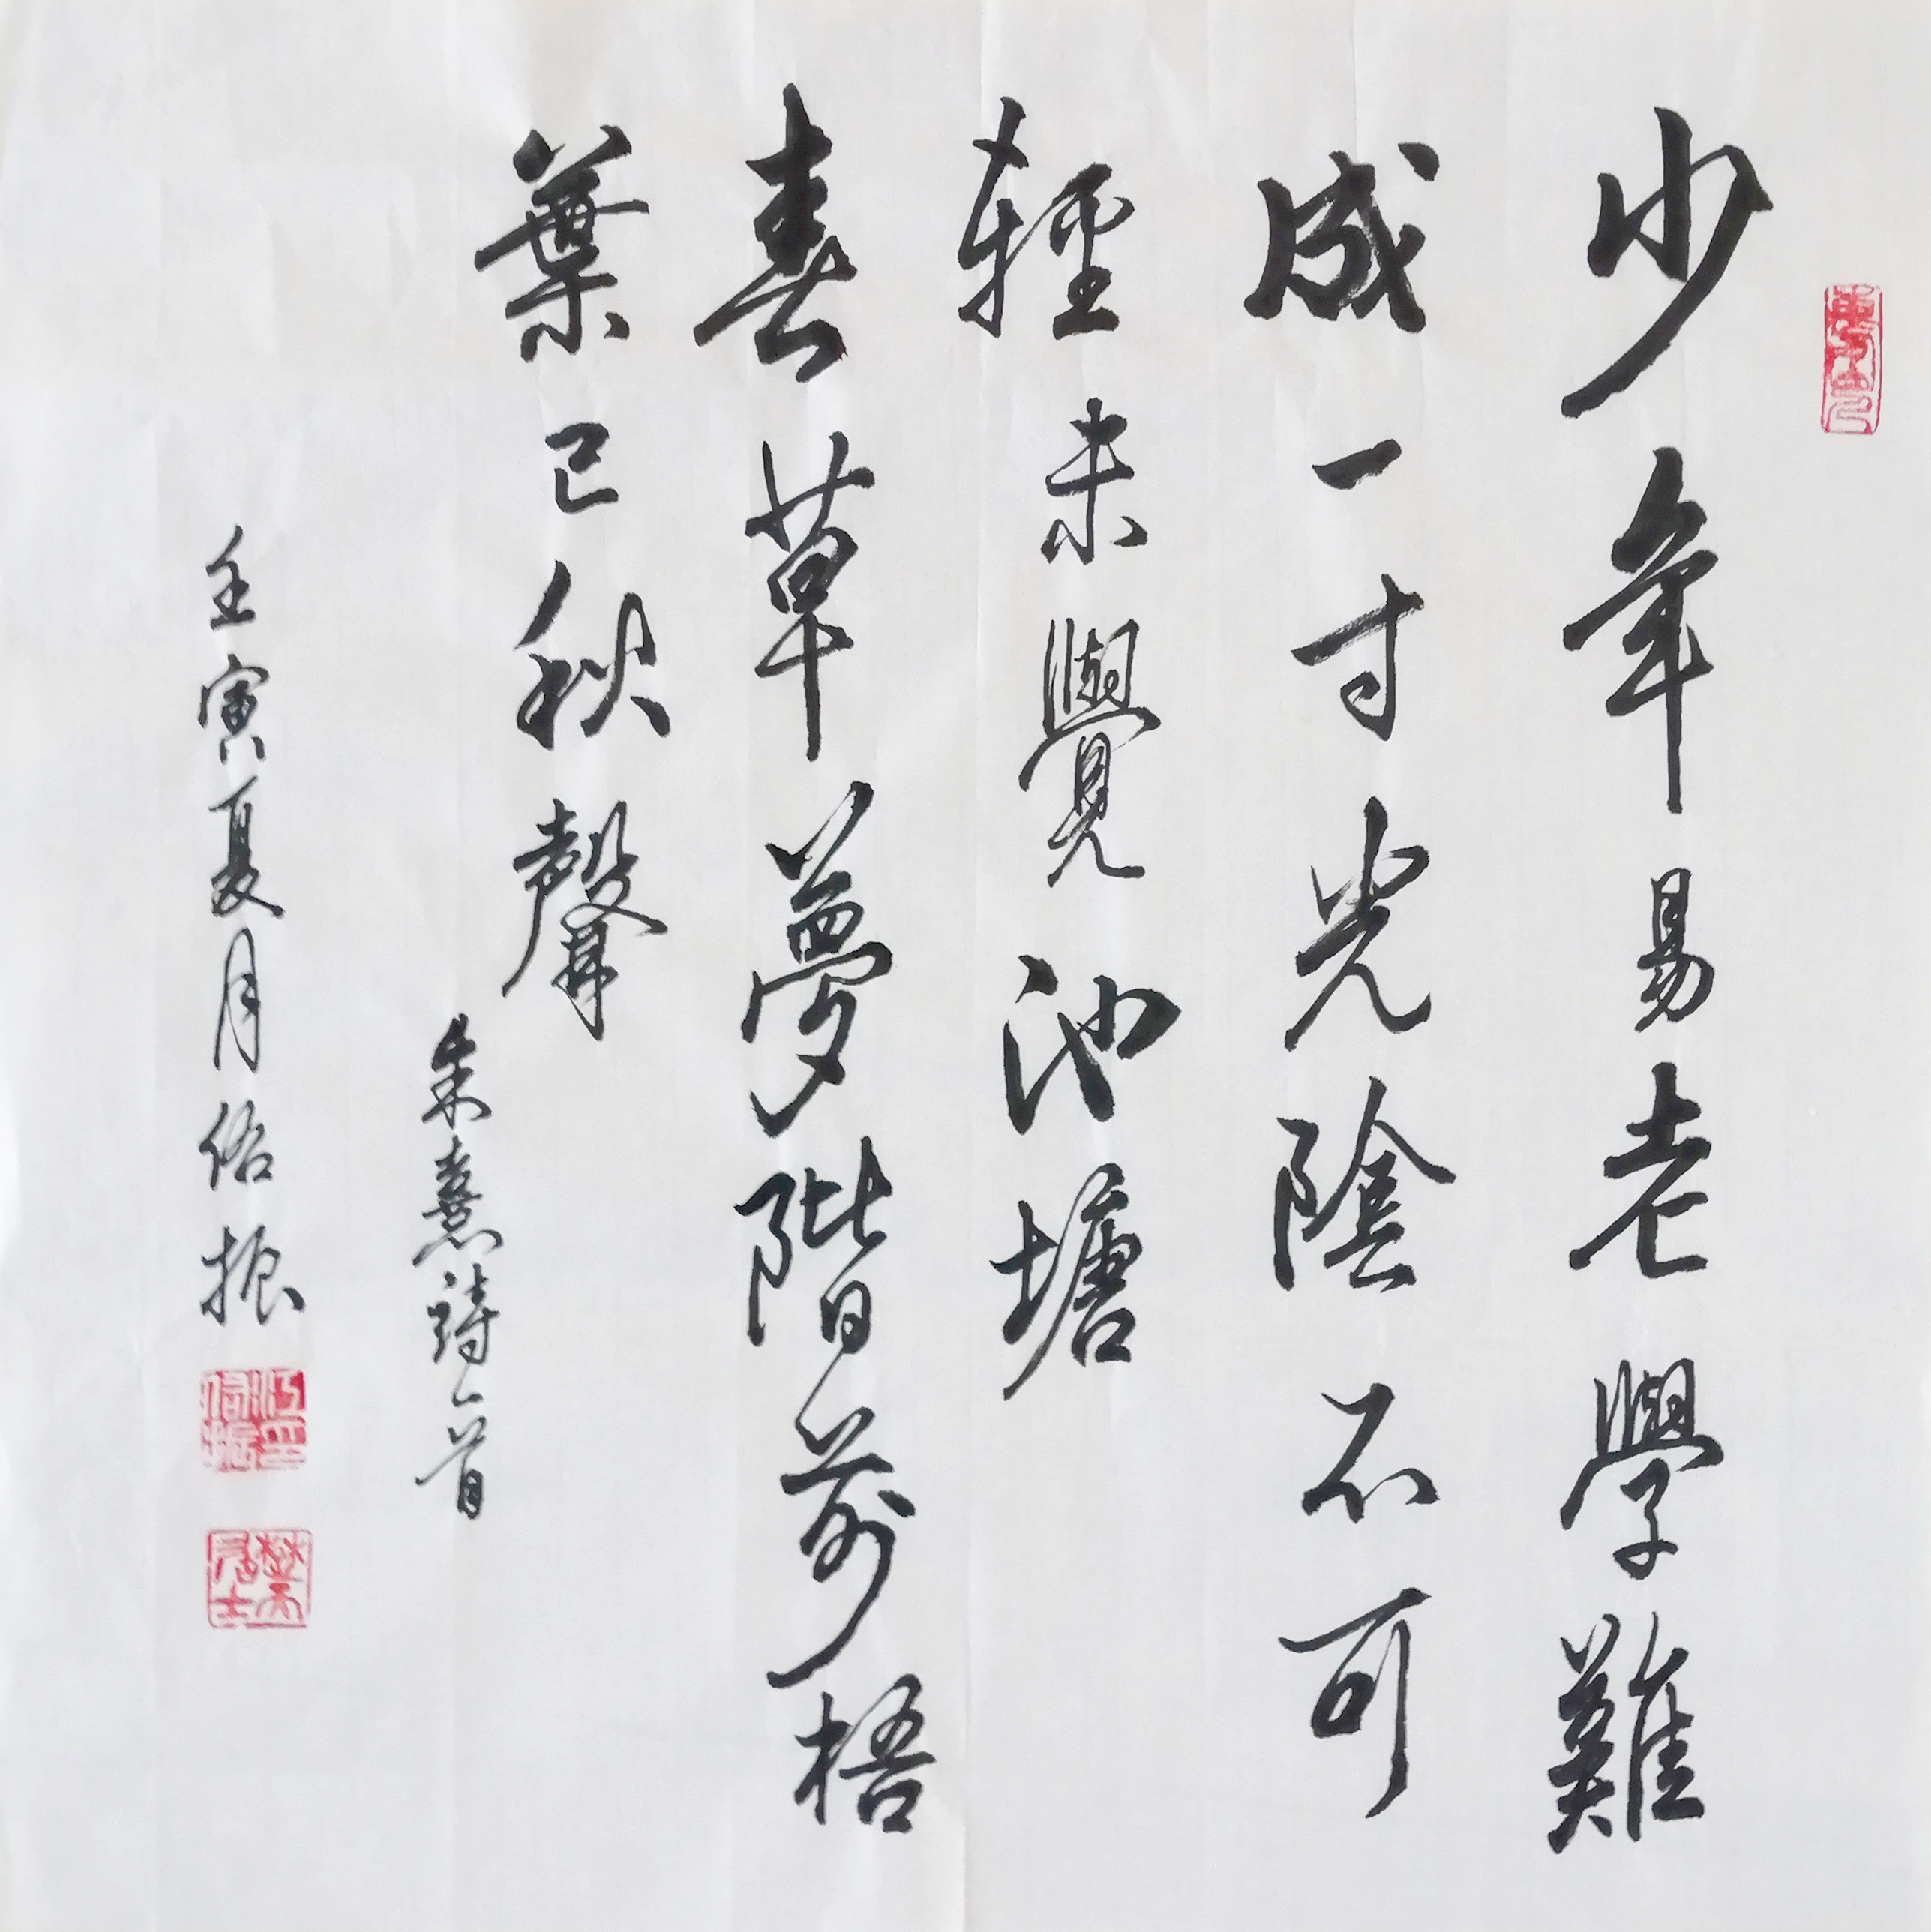 少年易老學難
成一寸光陰不可
輕未覺池塘
春草夢階前梧
葉已秋聲
朱熹詩一首
壬寅夏月俗振